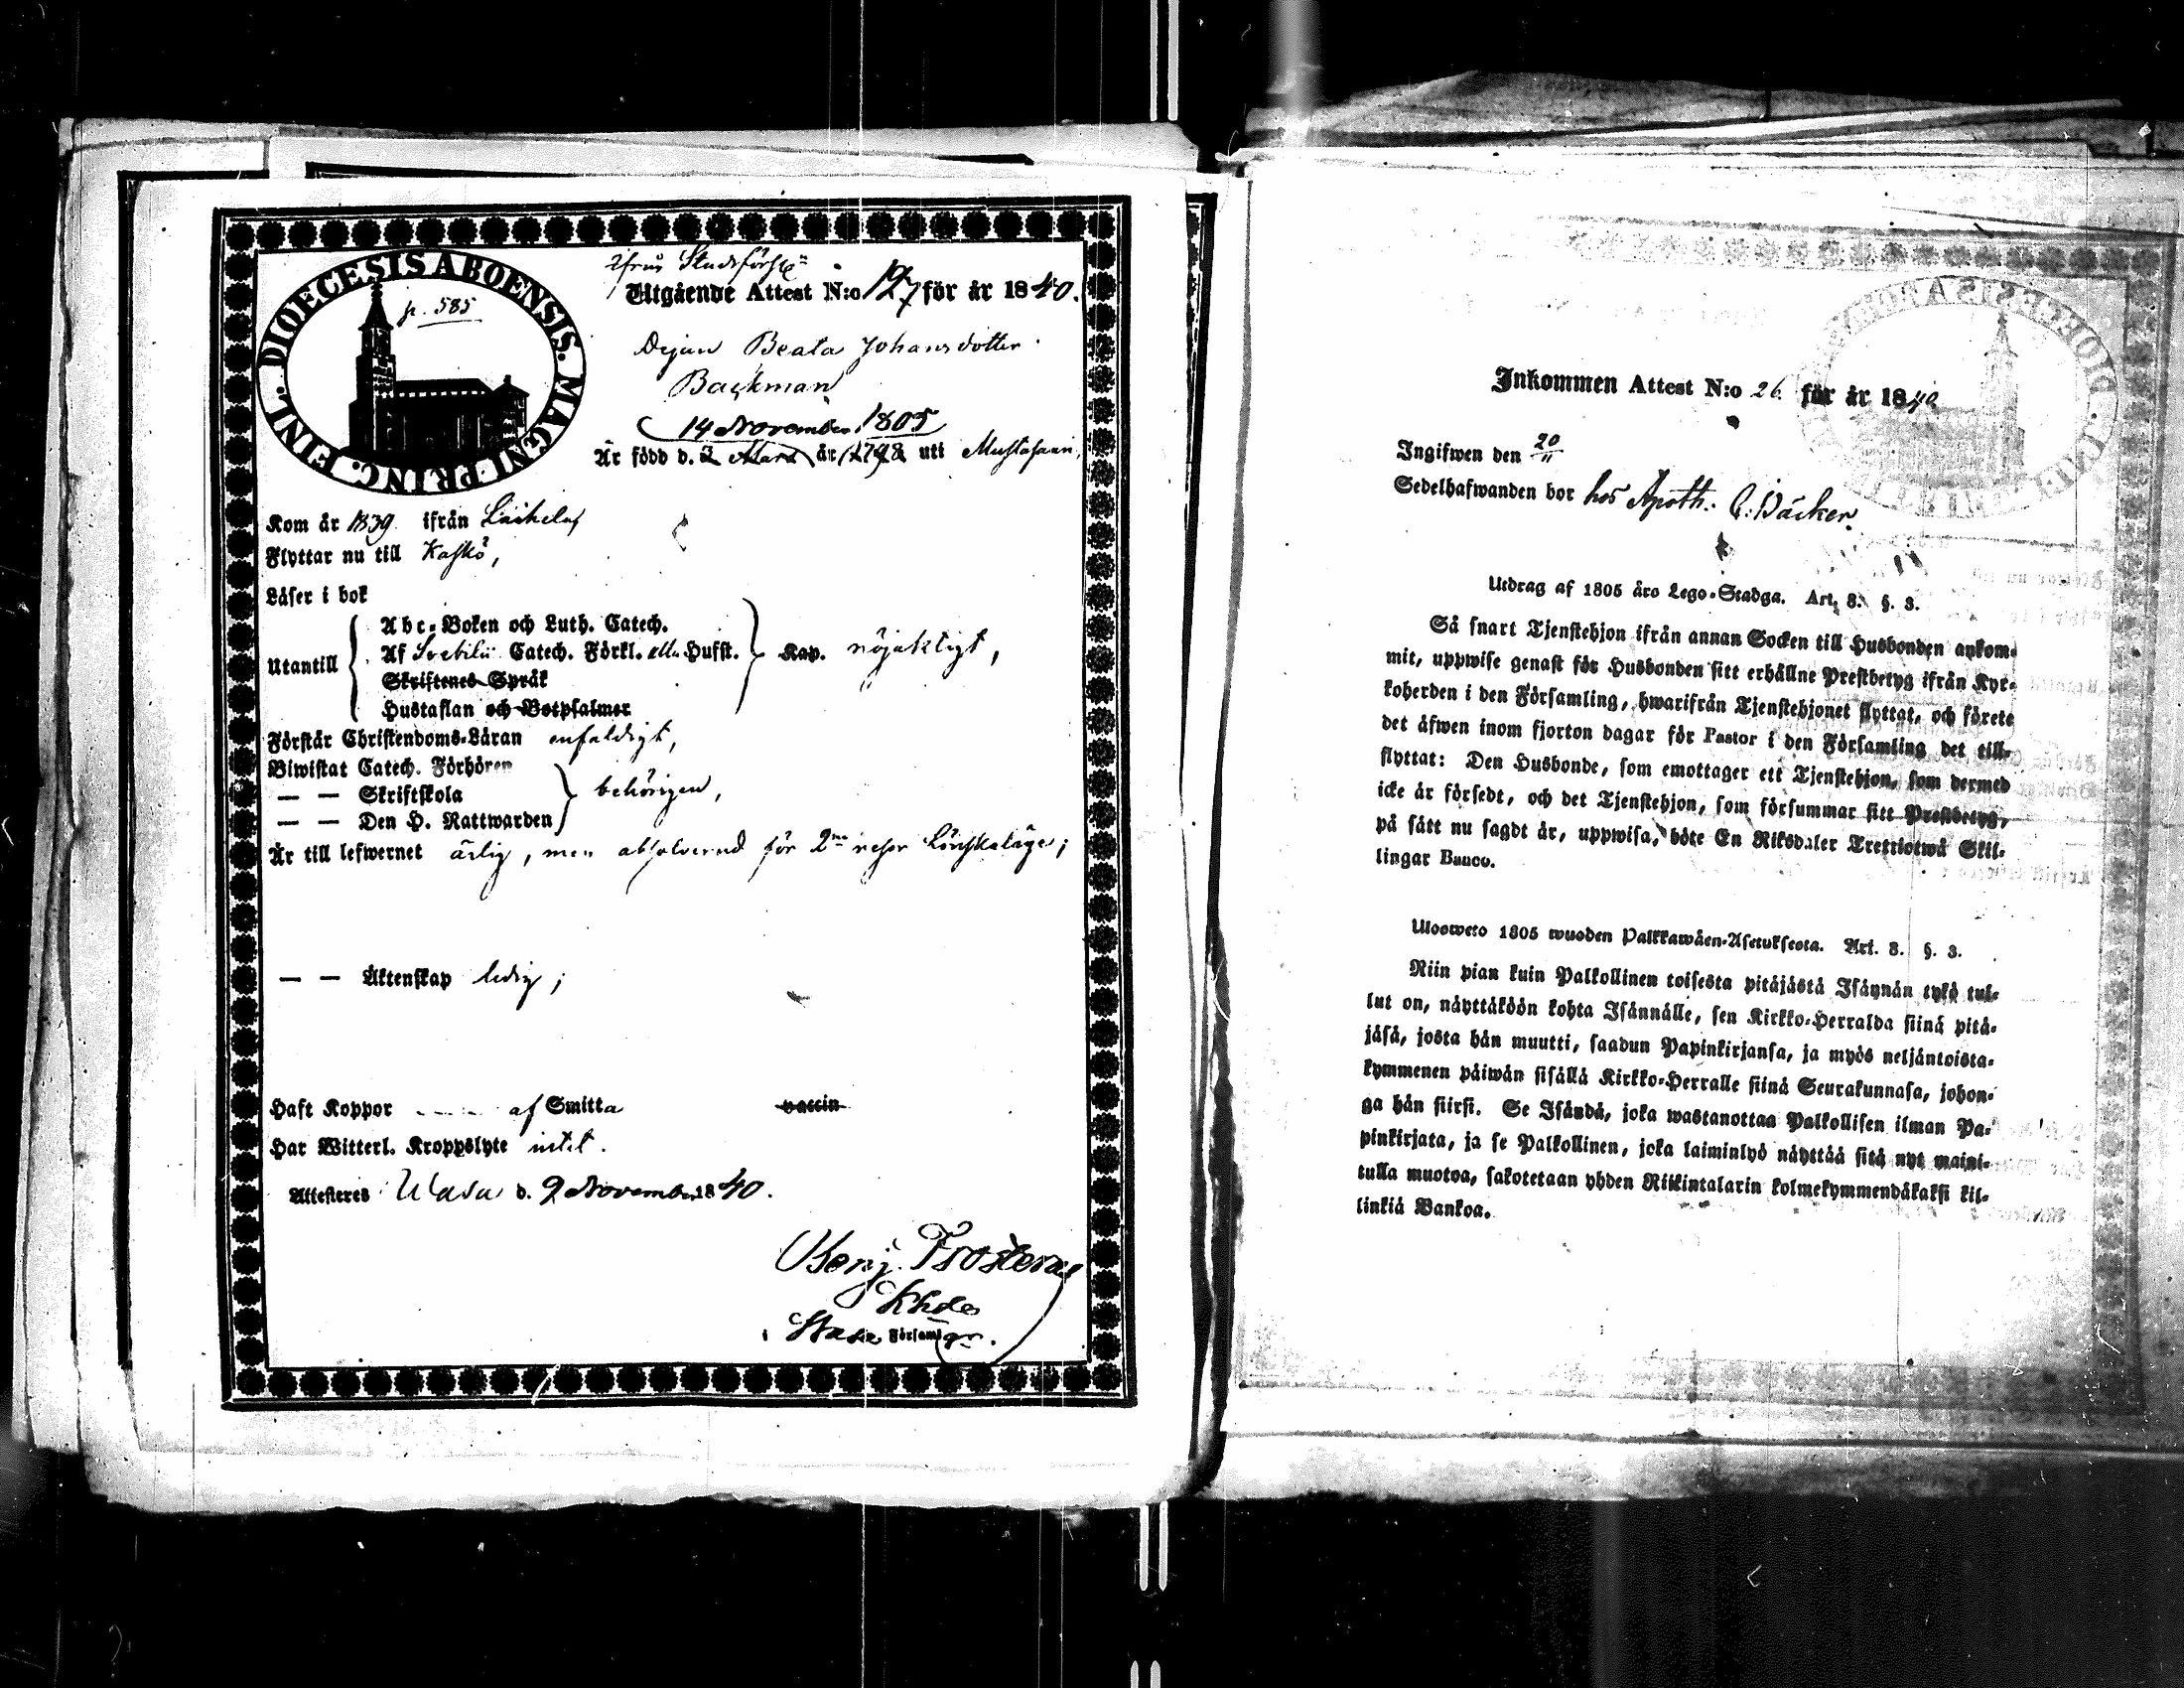 DIOECESIS ABOENSIS. MAGNI PRINC. FINL.
p. 585
ifrån
Utgående Attest N:o 127 för år 1840.
Pigan Beata Johansdotter
Backman
14 November 1805
Är född d. 3 Mars år 1798 uti Mustasaari,
Kom år 1839 ifrån
Flyttar nu till Kaskö,
Läser i bok
Utantill
Abc-Boken och Luth. Catech.
Af Svebilii Catech. Förkl. alla Hufst. Kap. nöjaktigt,
Skriftenes Språk
Hustaflan och Botpsalmer
Förstår Christendoms-Läran enfaldigt,
Biwistat Catech. Förhören
— — Skriftskola behörigen,
— — Den H. Nattwarden
Är till lefwernet ärlig, men absolverad för 2ne resor Lönskaläge;
— — Äktenskap ledig;
Haft Koppor af Smitta vaccin
Har Witterl. Kroppslyte intet.
Attesteras Wasa d. 9 November 1840.
Benj. Frosterus
Khde
Wasa Församlgr.
Inkommen Attest N:o 26 för år 1840
Ingifwen den 20/11
Sedelhafwanden bor hos Apoth. C. Bäcker
Utdrag af 1805 års Lego-Stadga. Art. 8. §. 3.
Så snart Tjenstehjon ifrån annan Socken till Husbonden ankom-
mit, uppwise genast för Husbonden sitt erhållne Prestbetyg ifrån Kyr-
koherden i den Församling, hwarifrån Tjenstehjonet flyttat, och förete
det äfwen inom fjorton dagar för Pastor i den Församling det till-
flyttat: Den Husbonde, som emottager ett Tjenstehjon, som dermed
icke är försedt, och det Tjenstehjon, som försummar sitt Prestbetyg,
på sätt nu sagdt är, uppwisa, böte En Riksdaler Trettiotwå Skil-
lingar Banco.
Ulosweto 1805 wuoden Palkkawäen-Asetuksesta. Art. 8. §. 3.
Niin pian kuin Palkollinen toisesta pitäjästä Isännän tykö tul-
lut on, näyttäköön kohta Isännälle, sen Kirkko-Herralda siinä pitä-
jäsä, josta hän muutti, saadun Papinkirjansa, ja myös neljäntoista-
kymmenen päiwän sisällä Kirkko-Herralle siinä Seurakunnasa, johon-
ga hän siirsi. Se Isändä, joka wastanottaa Palkollisen ilman Pa-
pinkirjata, ja se Palkollinen, joka laiminlyö näyttää sitä nyt maini-
tulla muotoa, sakotetaan yhden Riikintalarin kolmekymmendäkaksi kil-
linkiä Bankoa.